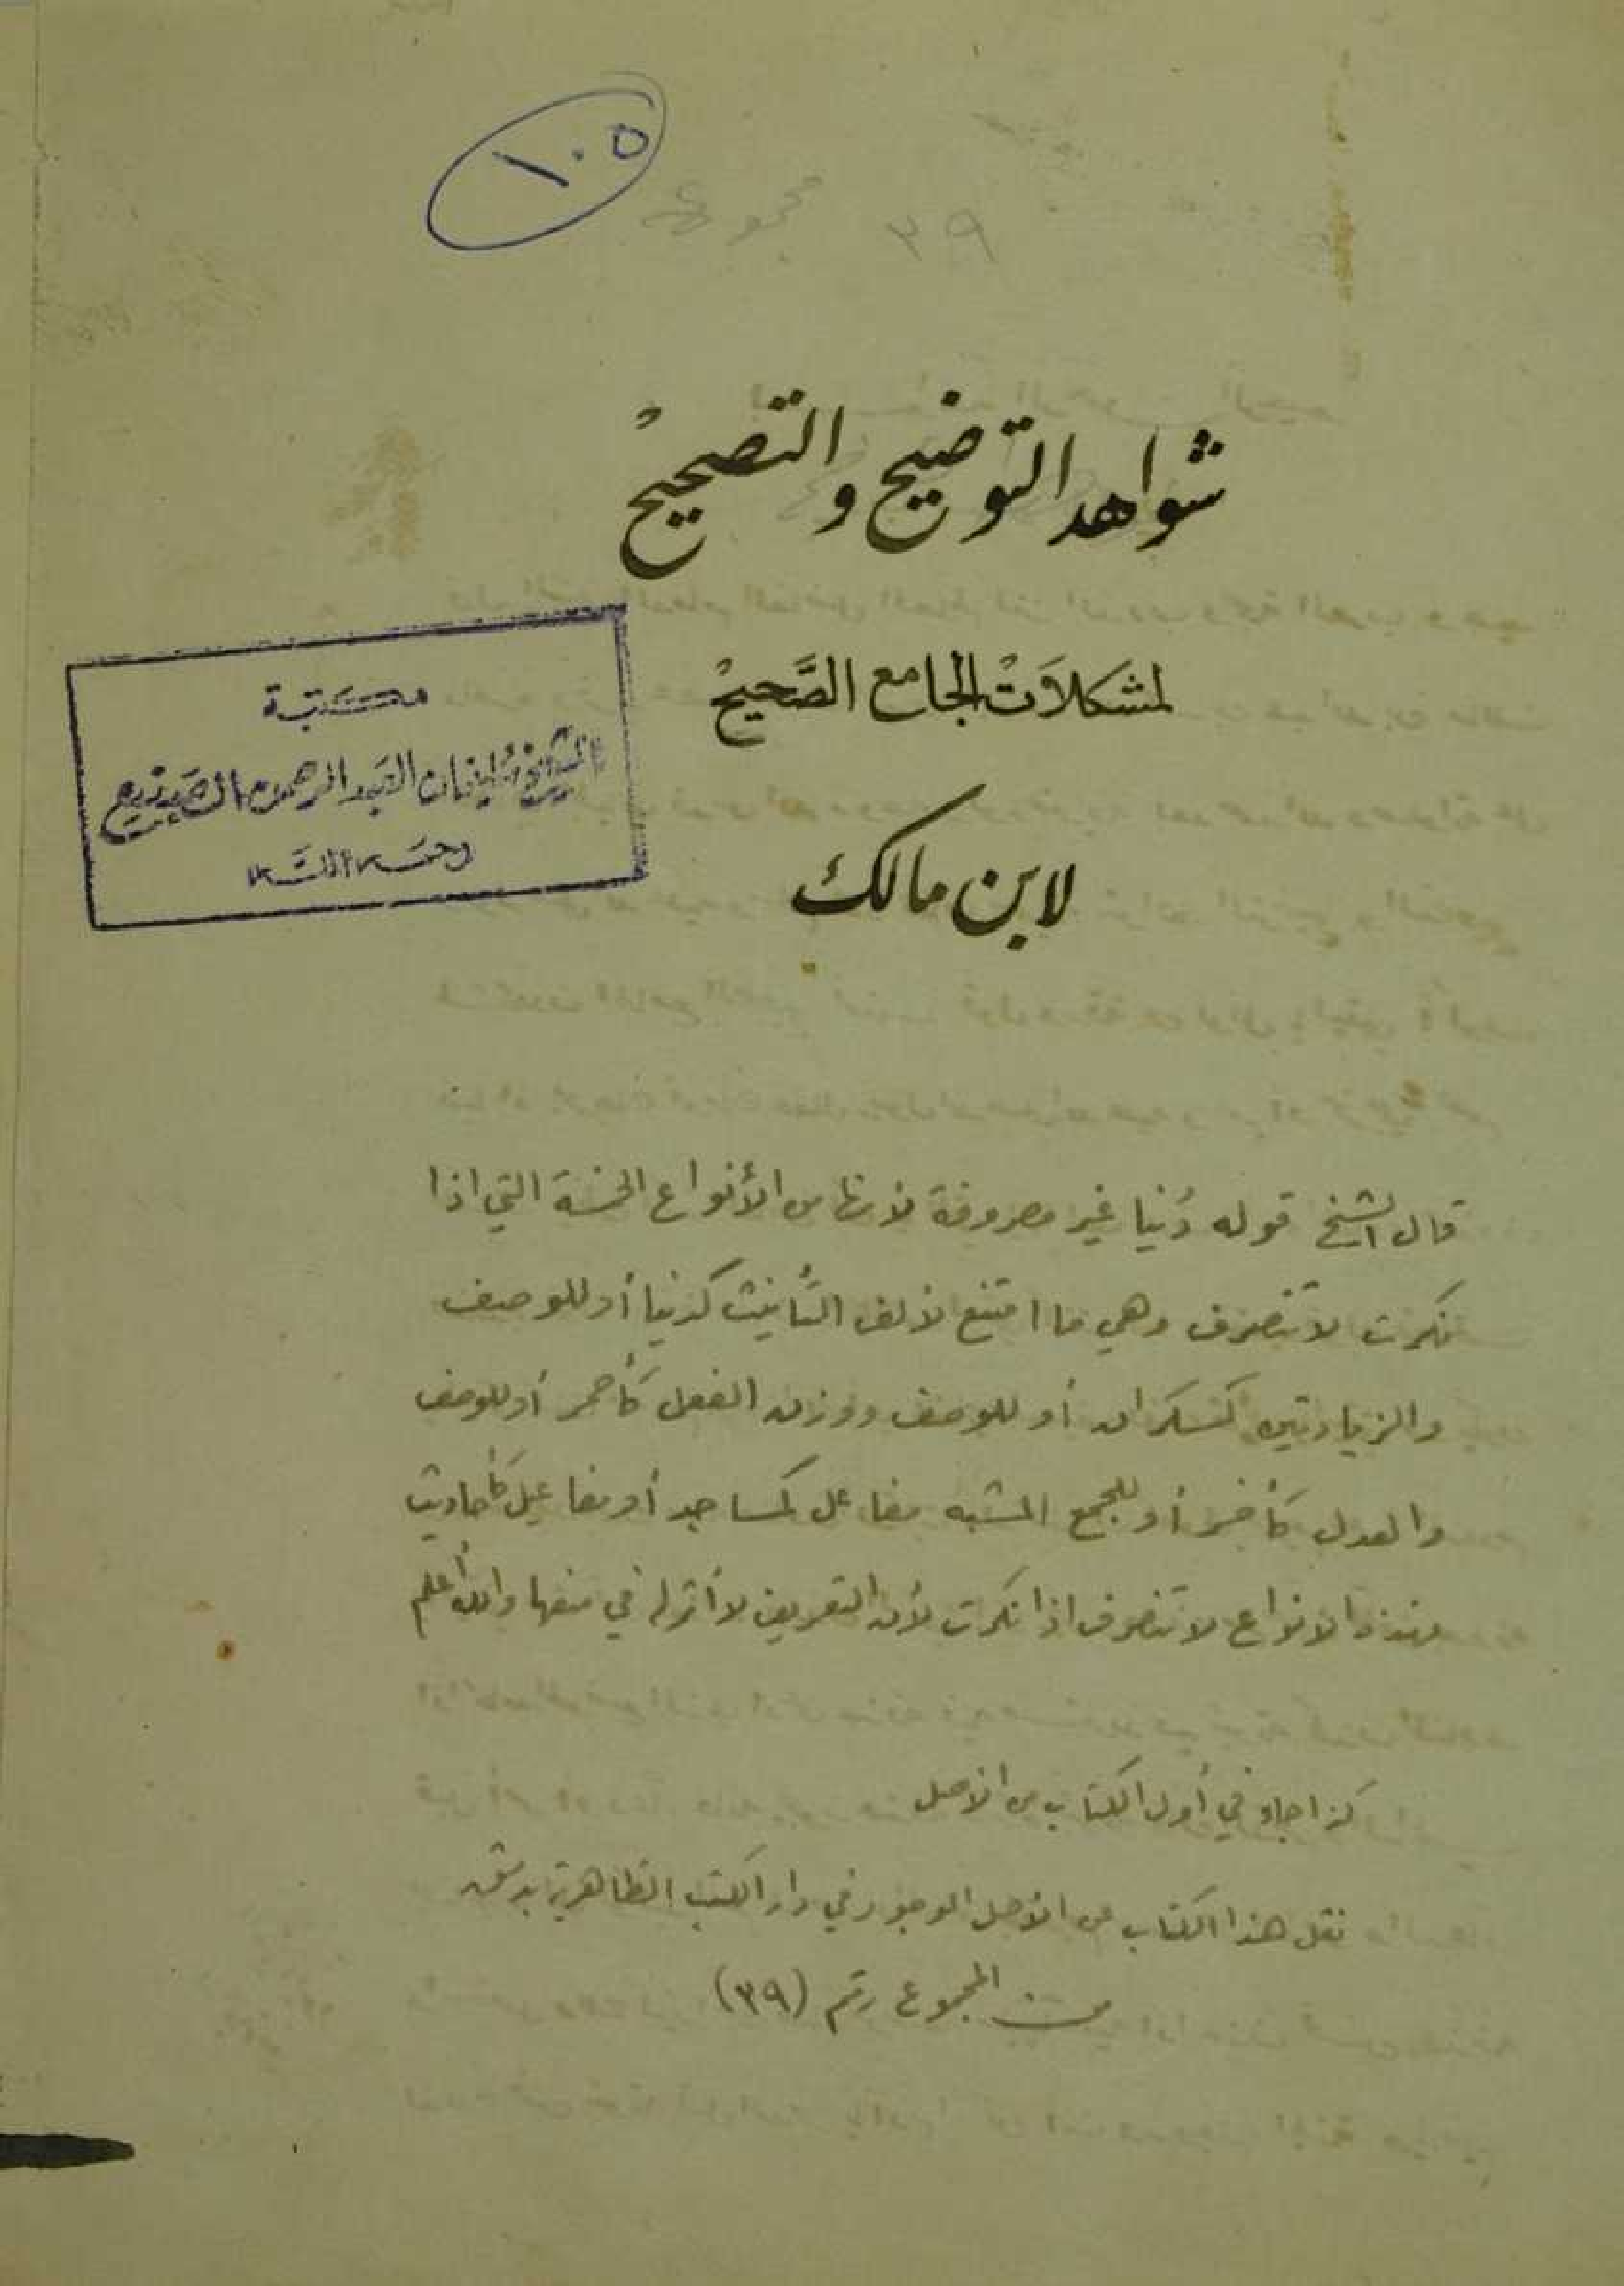 ١٠٥
٣٩ مجموعة
شواهد التوضيح والتصحيح
لمشكلات الجامع الصَّحيح
مكتبة
الشيخ سليمان العبد الرحمن الصنيع
رحمه الله
لابن مالك
قال الشيخ قوله دُنيا غير مصروفة لأنها من الأنواع الخمسة التي اذا
نكرت لا تنصرف وهي ما امتنع لألف التأنيث كدنيا أو للوصف
والزيادتين كسكران أو للوصف ووزن الفعل كأحمر أو للوصف
والعدل كأخر أو للجمع المشبه مفاعل كمساجد أو مفاعيل كأحاديث
فهذه الانواع لا تنصرف اذا نكرت لأن التعريف لا أثر له في منعها والله أعلم
كذا جاء في أول الكتاب من الأصل
نقل هذا الكتاب عن الأصل الموجود في دار الكتب الظاهرية بدمشق
من المجموع رقم (٣٩)